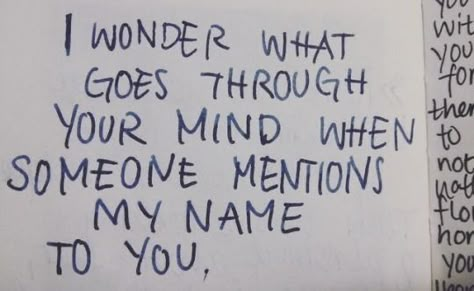 I WONDER WHAT
GOES THROUGH
YOUR MIND WHEN
SOMEONE MENTIONS
MY NAME
TO YOU,
wit
you
for
to
not
you